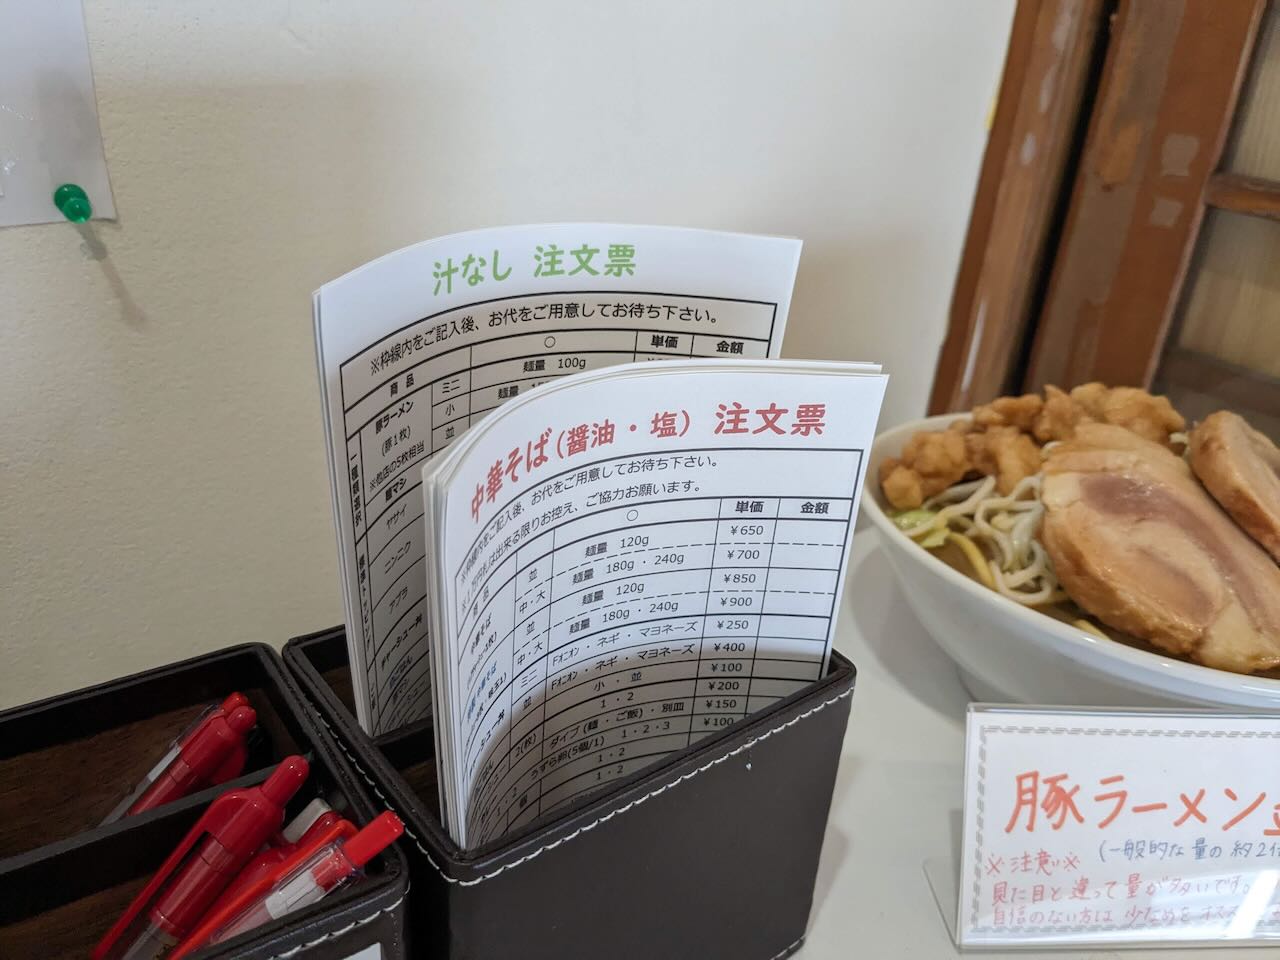 汁なし 注文票
※枠線内をご記入後、お代をご用意してお待ち下さい。
商品 ○ 単価 金額
豚ラーメン ミニ 麺量 100g
(豚1枚) 小 麺量
※他店の5枚相当 並
一種類選択
麺マシ
ヤサイ
ニンニク
アブラ
中華そば(醤油・塩) 注文票
※枠線内をご記入後、お代をご用意してお待ち下さい。
※1万円札は出来る限りお控え、ご協力お願います。
商品 ○ 単価 金額
中華そば 並 麺量 120g ¥650
中・大 麺量 180g・240g ¥700
並 麺量 120g ¥850
中・大 麺量 180g・240g ¥900
ミニ Fオニオン・ネギ・マヨネーズ ¥250
並 Fオニオン・ネギ・マヨネーズ ¥400
小・並 ¥100
2(枚) 1・2 ¥200
ダイブ(麺・ご飯)・別皿 ¥150
うずら卵(5個/1) 1・2・3 ¥100
1・2
1・2
豚ラーメン
※注意※ (一般的な量の約2
見た目と違って量が多いです。
自信のない方は少なめをオススメ